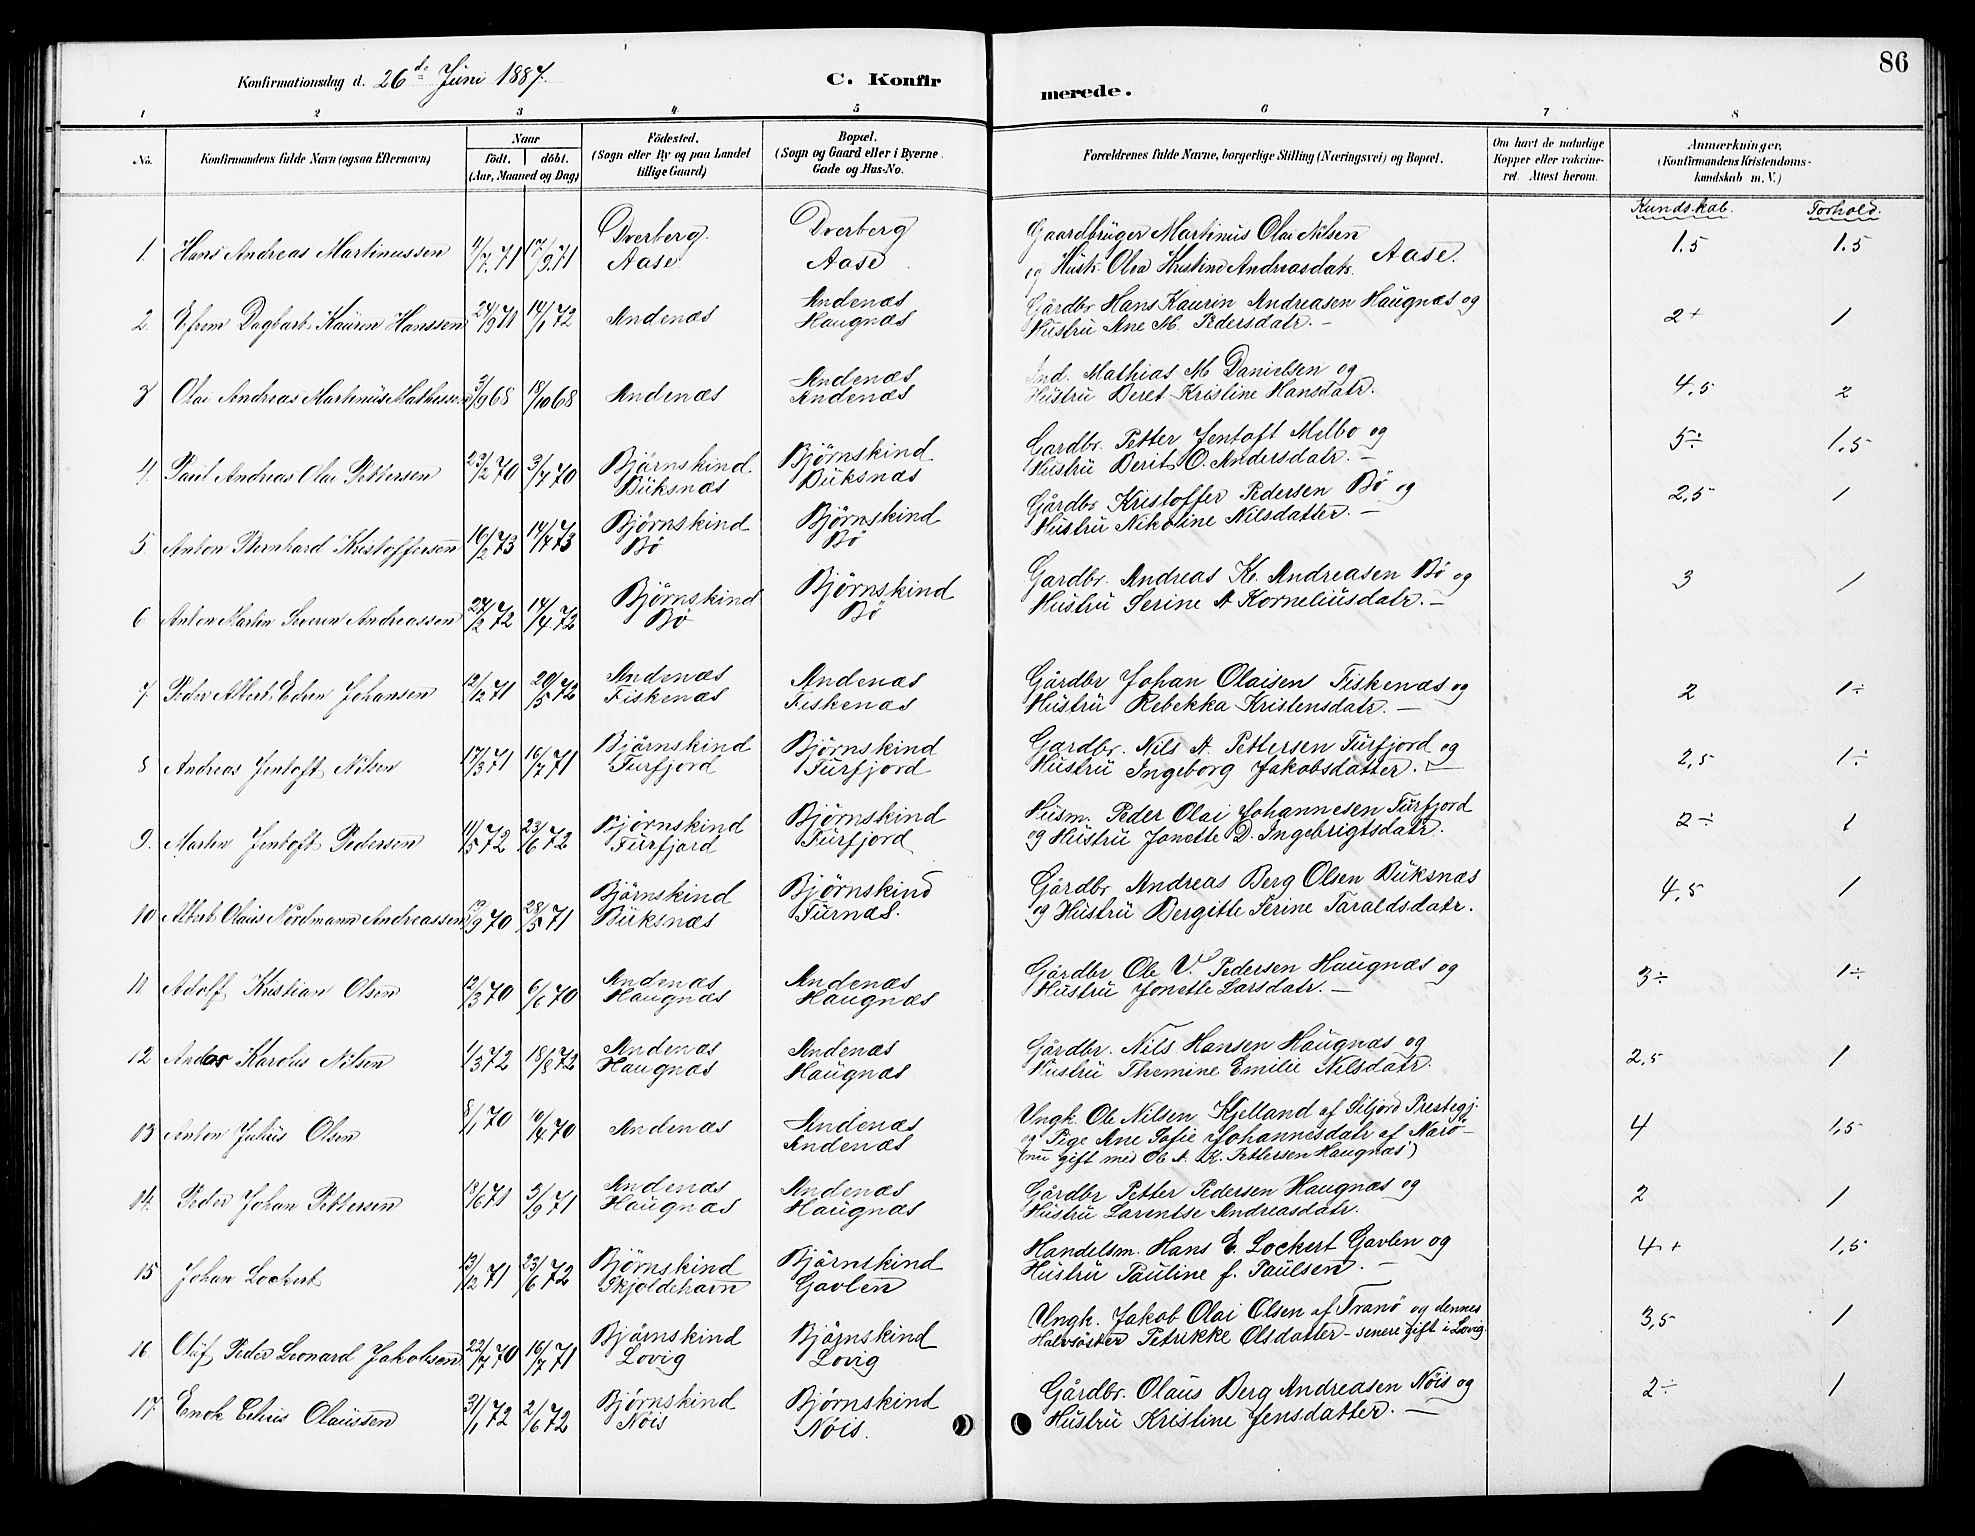 86
Konfirmationsdag d. 26de Juni 1887. C. Konfirmerede.
1 2 3 4 5 6 7 8
No. Konfirmandens fulde Navn (ogsaa Efternavn) Naar födt. döbt. (Aar, Maaned og Dag) Födested. (Sogn eller By og paa Landet tillige Gaard) Bopæl. (Sogn og Gaard eller i Byerne Gade og Hus-No. Forældrenes fulde Navne, borgerlige Stilling (Næringsvei) og Bopæl. Om havt de naturlige Kopper eller vakcineret. Attest herom. Anmærkninger. (Konfirmandens Kristendomskundskab m. V.)
Kundskab. Forhold.
1. Hans Andreas Martinussen 11/7.71 17/9.71 Dverberg. Aase. Dverberg Aase. Gaardbrüger Martinus Olai Nilsen og Hustr. Olea Kristine Andreasdatr. Aase. 1.5 1.5
2. Efrem Dagbart Kaüren Hanssen 24/9 71 14/1 72 Andenæs Andenæs Haugnæs Gårdbr Hans Kaurin Andreasen Haügnæs og Hüstrü Ane M. Pedersdatr. — 2+ 1
3 Olai Andreas Martinüs Mathisen 3/9 68 18/10 68 Andenæs Andenæs Andenæs Ind. Mathias M Danielsen og Hüstrü Beret Kristine Hansdatr. 4,5 2
4. Paul Andreas Olai Pettersen 23/2 70 3/7 70 Bjørnskind. Büksnæs Bjørnskind Büksnæs Gardbr. Petter Jentoft Melbo og Hüstrü Berit O. Andersdatr. — 5÷ 1.5
5 Anton Bernhard Kristoffersen 16/2 73 14/4 73 Bjørnskind Bö Bjørnskind Bö Gårdbr Kristoffer Pedersen Bö og Hüstrü Nikoline Nilsdatter. — 2,5 1
6 Anton Martin Severin Andreassen 27/2 72 14/4 72 Bjørnskind Bö Bjørnskind Bö Gardbr. Andreas Kr. Andreasen Bö og Hüstrü Serine A Korneliüsdatr. — 3 1
7. Peder Albert Edvin Johansen 12/12 71 20/5 72 Andenæs Fiskenæs Andenæs Fiskenæs Gårdbr Johan Olaisen Fiskenæs og Hüstrü Rebekka Kristensdatr. — 2 1÷
8 Andreas Jentoft Nilsen 17/3 71 16/7 71 Bjørnskind Fürfjord Bjørnskind Fürfjord Gardbr. Nils A. Pettersen Fürfjord og Hüstrü Ingeborg Jakobsdatter. — 2,5 1÷
9. Martin Jentoft Pedersen 11/5 72 23/6 72 Bjørnskind Fürfjord Bjørnskind Fürfjord Hüsm. Peder Olai Johannesen Fürfjord og Hüstrü Jonette D. Ingebrigtsdatr. 2÷ 1
10 Albert Olaüs Nordmann Andreassen /9 70 28/5 71 Bjørnskind Büksnæs Bjørnskind Fürnæs. Gårdbr. Andreas Berg Olsen Büksnæs og Hüstrü Bergitte Serine Taraldsdatr. 4,5 1
11 Adolf Kristian Olsen 12/3 70 6/6 70 Andenæs Haugnæs Andenæs Haugnæs Gårdbr Ole V. Pedersen Haügnæs og Hüstrü Jonette Larsdatr. — 3÷ 1÷
12 Andor Karolus Nilsen 1/3 72 18/8 72 Andenæs Haügnæs Andenæs Haügnæs Gårdbr. Nils Hansen Haügnæs og Hüstrü Themine Emilie Nilsdatr. 2,5 1
13 Anton Juliüs Olsen 8/1 70 10/4 70 Andenæs Andenæs Andenæs Ungk. Ole Nilsen Kjelland af Siljord Prestegj. og Pige Ane Sofie Johannesdatr af Narö — (nü gift med Ole A. K. Pettersen Haügnæs) 4 1,5
14. Peder Johan Pettersen 18/6 71 5/9 71 Andenæs Haügnæs Andenæs Haügnæs Gårdbr Petter Pedersen Haugnæs og Hüstrü Larentse Andreasdatr. 2 1
15 Johan Lockert 13/12 71 23/6 72 Bjørnskind Skjoldehavn Bjørnskind Gavlen Handelsm. Hans E. Lockert Gavlen og Hüstrü Pauline f. Paülsen. — 4+ 1,5
16. Olüf Peder Leonard Jakobsen 22/7 70 16/7 71 Bjørnskind Lovig Bjørnskind Lovig Ungk. Jakob Olai Olsen af Tranö og dennes Halvsöster Petrikke Olsdatter — senere gift i Lovig. 3,5 1
17. Enok Olaüssen 31/1 72 2/6 72 Bjørnskind Nöis Bjørnskind Nöis. Gårdbr. Olaüs Berg Andreasen Nöis og Hüstrü Kristine Jensdatter. — 2÷ 1